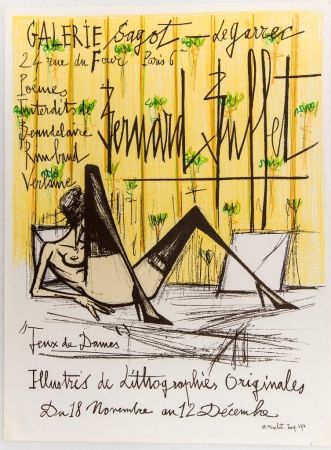 GALERIE Sagot - Le Garrec
24 rue du Four Paris 6e
Poemes
Interdits de
Beaudelaire
Rimbaud
Verlaine
Bernard Buffet
"Jeux de Dames"
Illustrés de Lithographies Originales
Du 18 Novembre au 12 Décembre